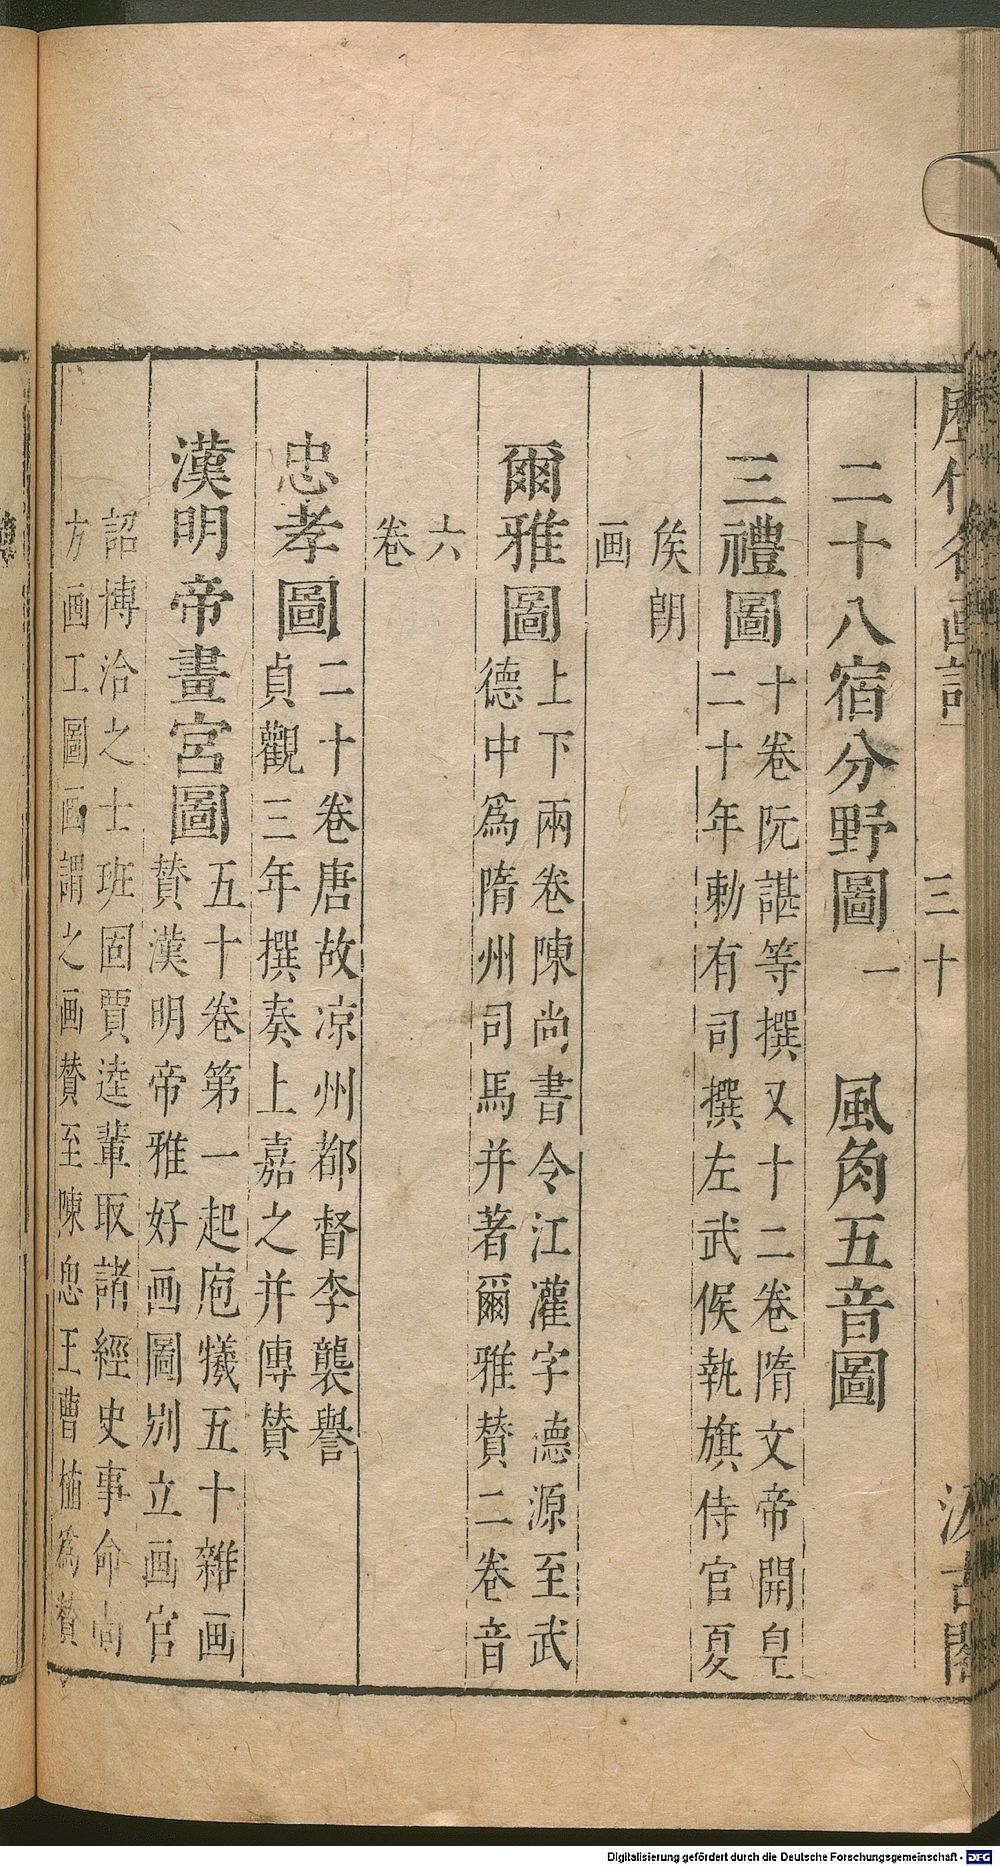 歷代名画記 三十 汲古閣
二十八宿分野圖一 風角五音圖
三禮圖十卷阮諶等撰又十二卷隋文帝開皇
二十年勅有司撰左武候執旗侍官夏
侯朗
画
爾雅圖上下兩卷陳尚書令江灌字德源至武
德中爲隋州司馬并著爾雅賛二卷音
六
卷
忠孝圖二十卷唐故凉州都督李襲譽
貞觀三年撰奏上嘉之并傳賛
漢明帝畫宮圖五十卷第一起庖犧五十雜画
賛漢明帝雅好画圖別立画官
詔博洽之士班固賈逵輩取諸經史事命尚
方画工圖画謂之画賛至陳思王曹植爲賛
Digitalisierung gefördert durch die Deutsche Forschungsgemeinschaft - DFG